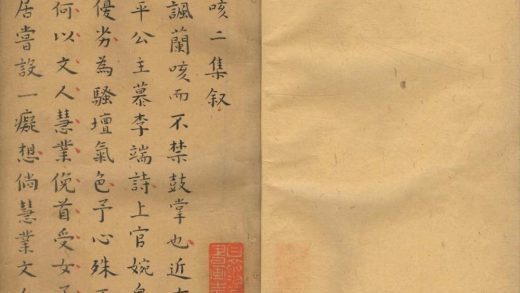 咳二集叙
諷蘭咳而不禁鼓掌也近
平公主慕李端詩上官婉
優劣為騷壇氣色予心殊
何以文人慧業俛首受女
居嘗設一癡想倘慧業文